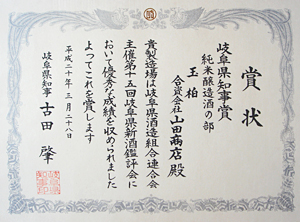 賞状
岐阜県知事賞
純米醸造酒の部
玉柏
合資会社山田商店殿
貴製造場は岐阜県酒造組合連合会
主催第十五回岐阜県新酒鑑評会に
おいて優秀な成績を収められました
よってこれを賞します
平成二十年三月二十八日
岐阜県知事 古田肇